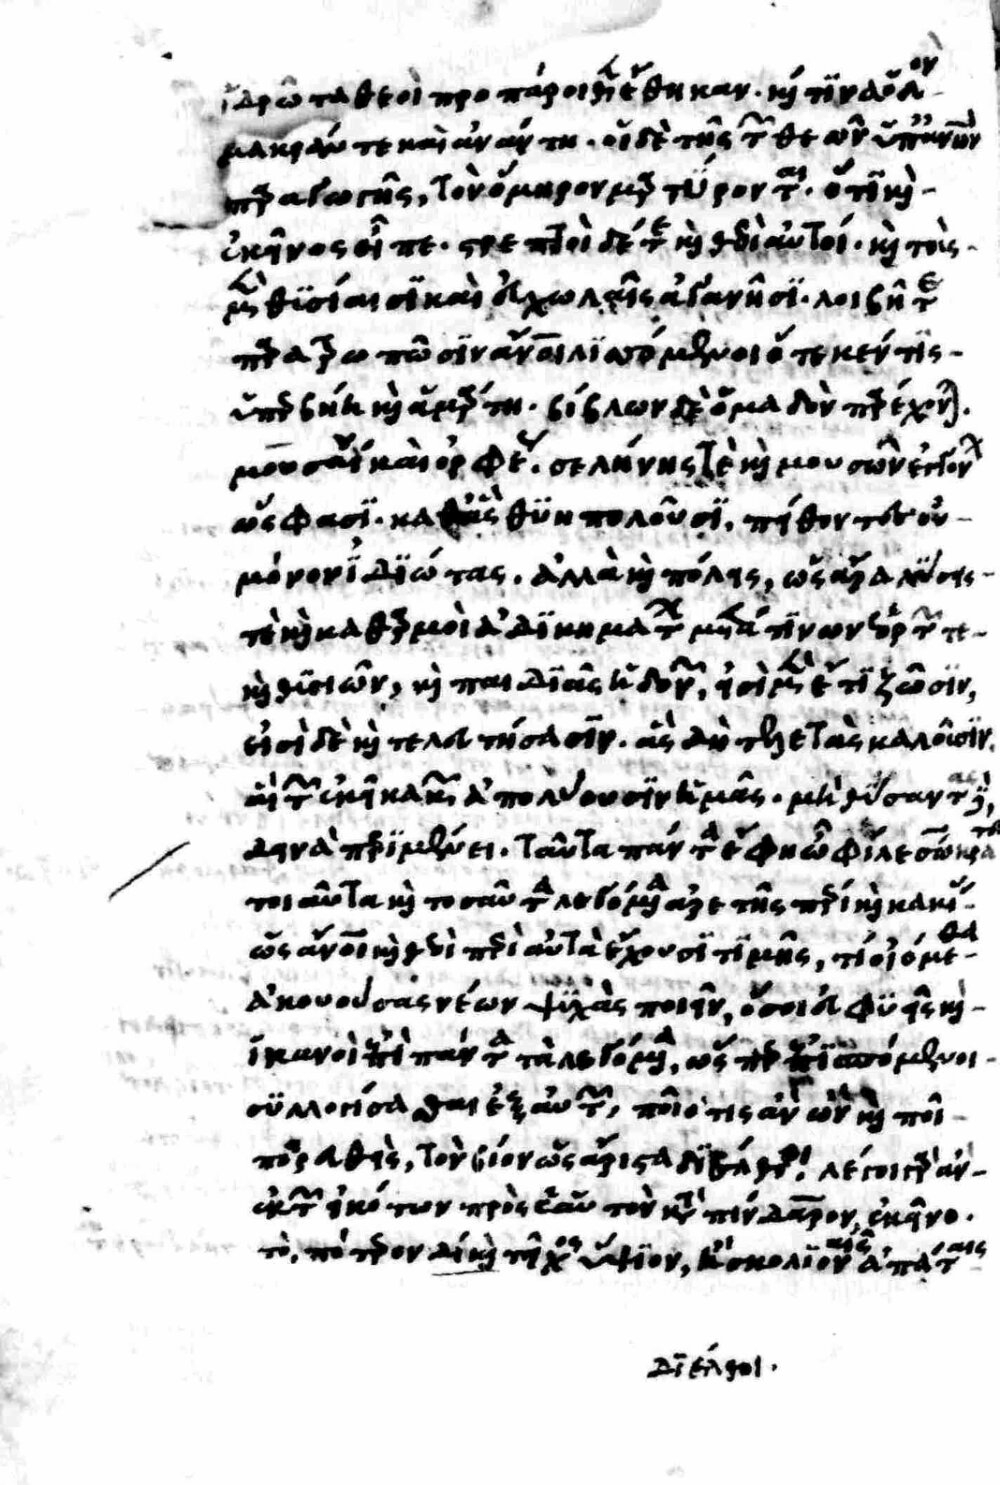 ἱδρῶτα θεοὶ προπάροιθεν ἔθηκαν· καί τινα ὁδὸν
μακράν τε καὶ ἀνάντη· οἱ δὲ τῆς τῶν θεῶν ὑπ' ἀνθρώπων
παραγωγῆς, τὸν ὅμηρον μαρτύρονται· ὅτι καὶ
ἐκεῖνος εἶπε· στρεπτοὶ δέ τε καὶ θεοὶ αὐτοί· καὶ τοὺς
μὲν θυσίαισι καὶ εὐχωλαῖς ἀγανῆσι· λοιβῇ τε
παρατρωπῶσιν ἄνθρωποι λισσόμενοι ὅτε κέν τις
ὑπερβήῃ καὶ ἁμάρτῃ· βίβλων δὲ ὅμαδον παρέχονται
μουσαίου καὶ ὀρφέως· σελήνης τε καὶ μουσῶν ἐκγόνων
ὥς φασι· καθ' ἃς θυηπολοῦσι, πείθοντες οὐ
μόνον ἰδιώτας, ἀλλὰ καὶ πόλεις, ὡς ἄρα λύσεις
τε καὶ καθαρμοὶ ἀδικημάτων μετὰ θυσιῶν
καὶ παιδιᾶς ἡδονῶν, εἰσὶ μὲν ἔτι ζῶσιν,
εἰσὶ δὲ καὶ τελευτήσασιν· ἃς δὴ τελετὰς καλοῦσιν,
αἳ τῶν ἐκεῖ κακῶν ἀπολύουσιν ἡμᾶς· μὴ θύσαντας
δεινὰ περιμένει· ταῦτα πάντα ἔφη ὦ φίλε σώκρατες
τοιαῦτα καὶ τοσαῦτα λεγόμενα ἀρετῆς πέρι καὶ κακίας
ὡς ἄνθρωποι καὶ θεοὶ περὶ αὐτὰ ἔχουσι τιμῆς, τί οἰόμεθα
ἀκουούσας νέων ψυχὰς ποιεῖν, ὅσοι εὐφυεῖς καὶ
ἱκανοὶ ἐπὶ πάντα τὰ λεγόμενα, ὥσπερ ἐπιπτόμενοι
συλλογίσασθαι ἐξ αὐτῶν, ποῖός τις ἂν ὢν καὶ ποῖ
πορευθεὶς, τὸν βίον ὡς ἄριστα διέλθοι· λέγοι γὰρ ἂν
ἐκ τῶν εἰκότων πρὸς ἑαυτὸν κατὰ πίνδαρον, ἐκεῖνο
τὸ, πότερον δίκῃ τεῖχος ὕψιον, ἢ σκολιαῖς ἀπάταις
διέλθοι·